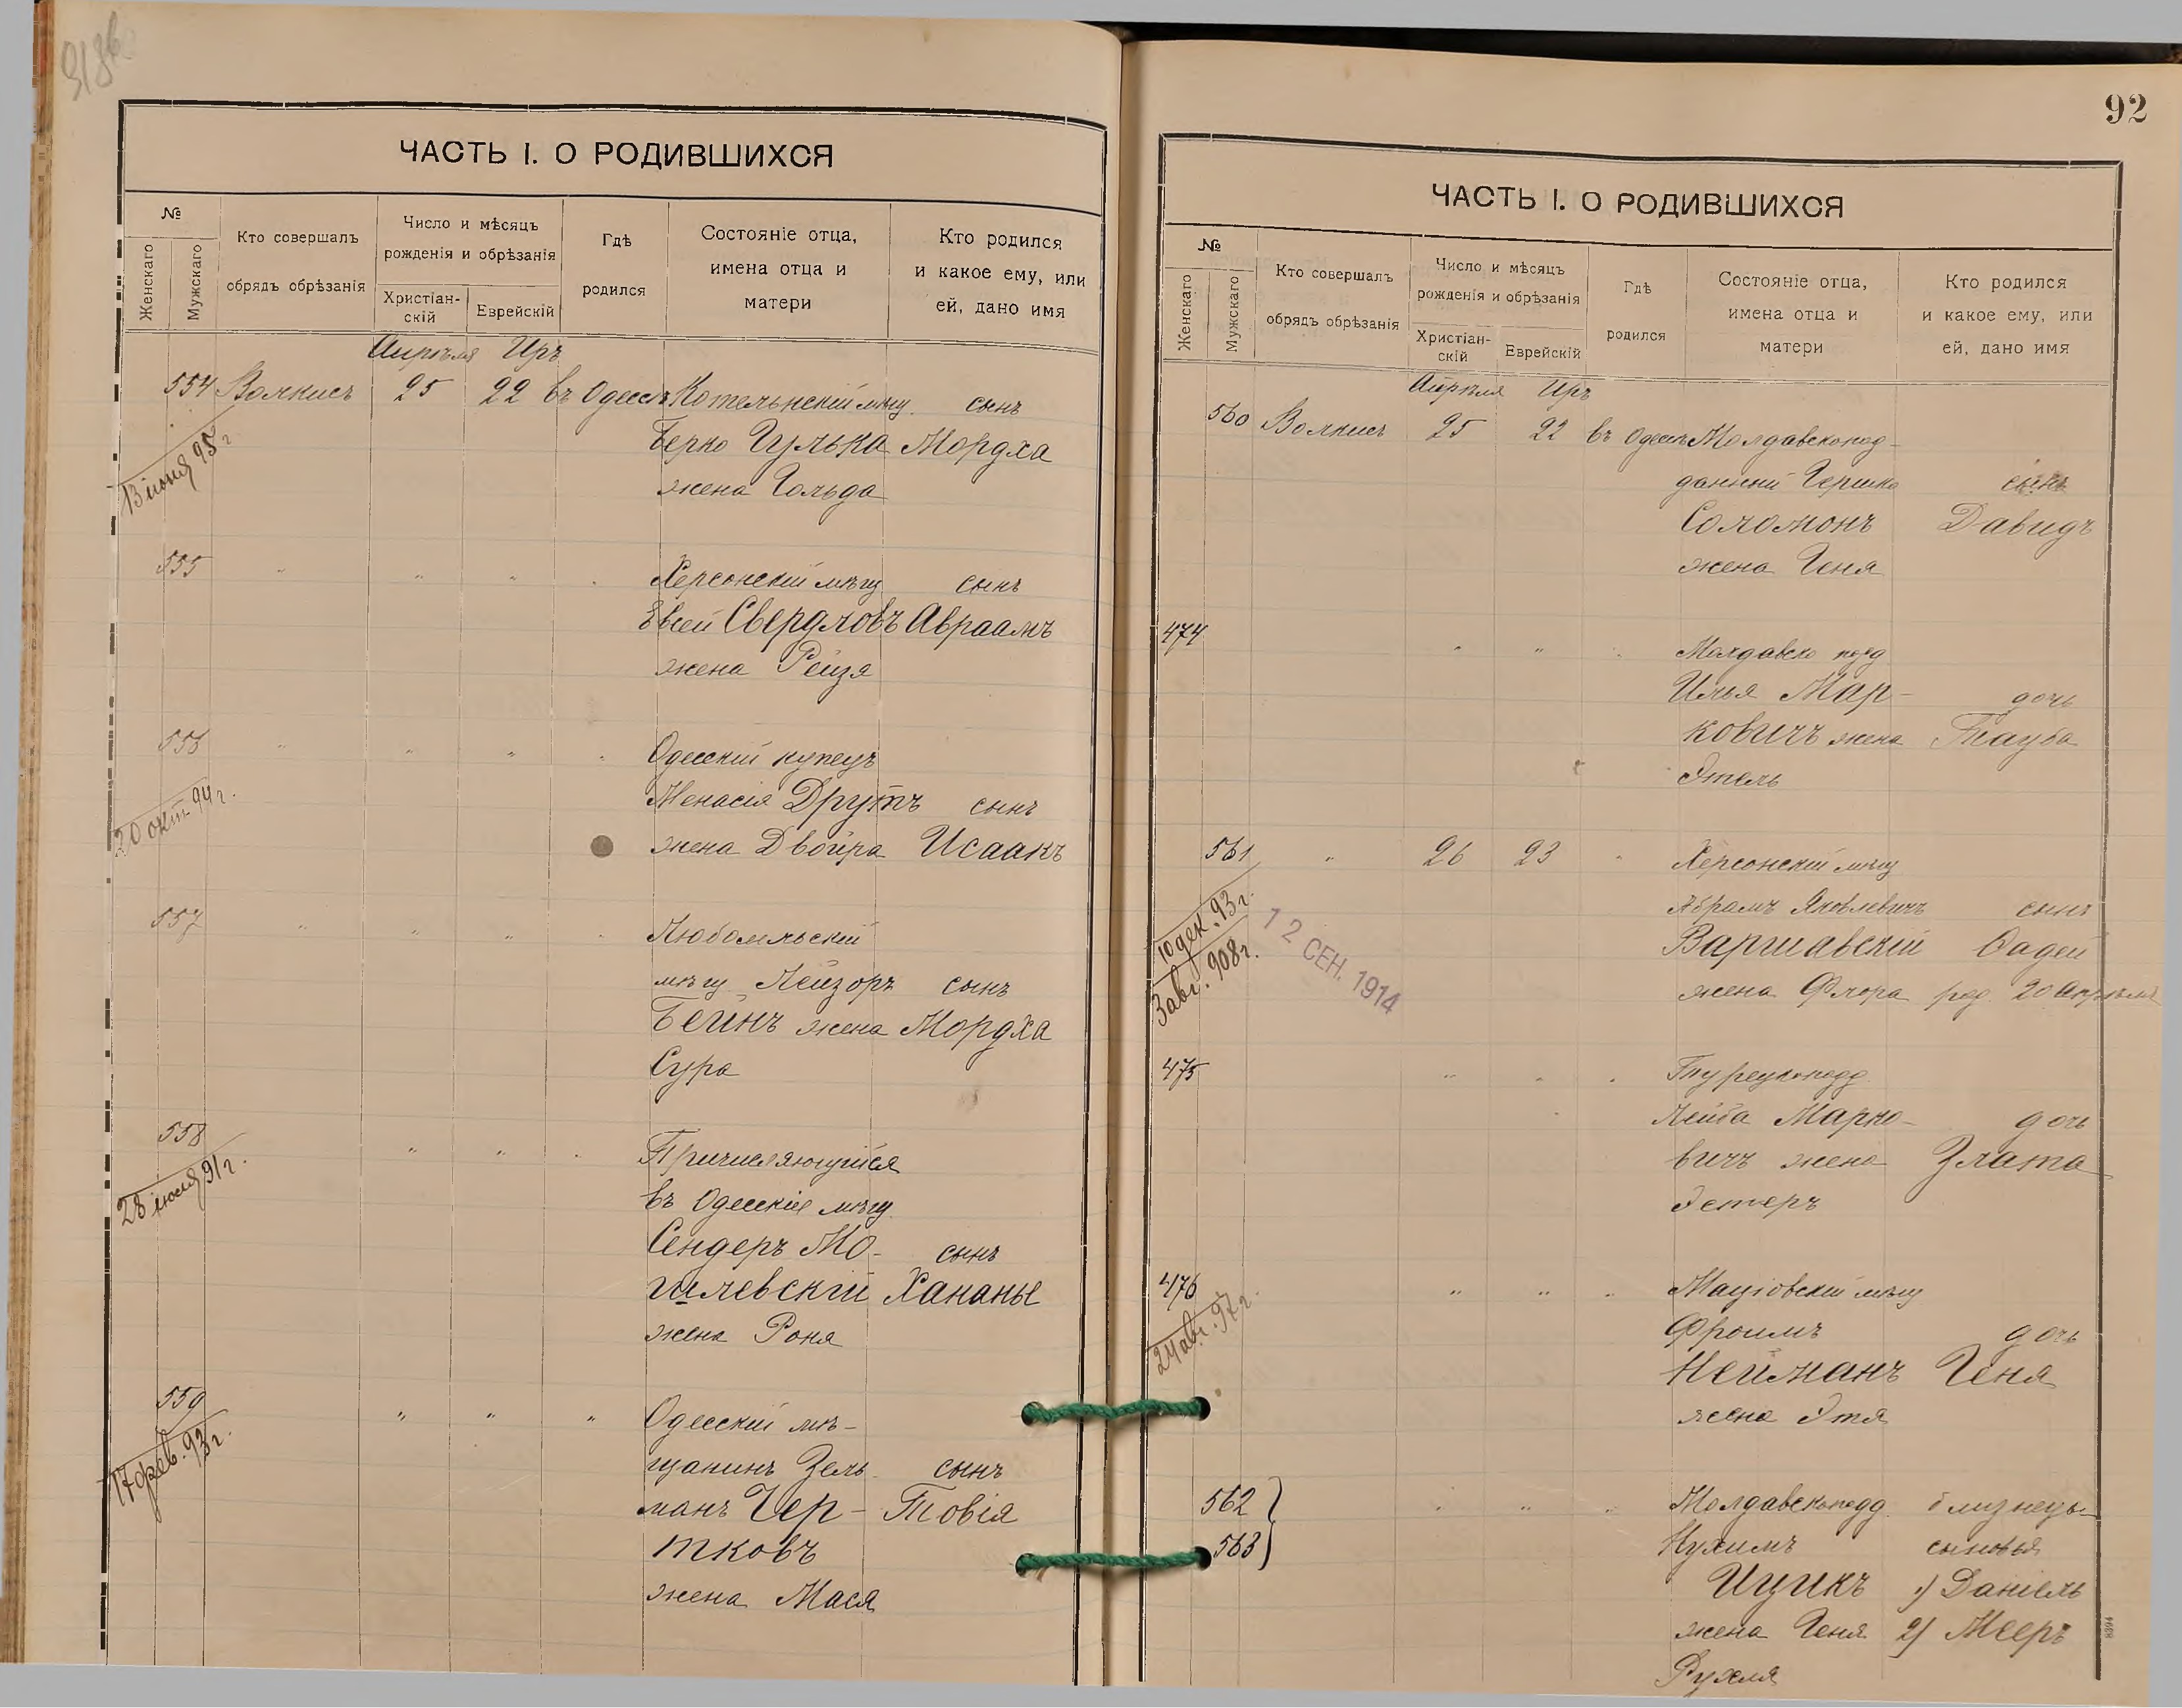 92
ЧАСТЬ I. О РОДИВШИХСЯ
№
Женскаго
Мужскаго
Кто совершалъ
обрядъ обрѣзанія
Число и мѣсяцъ
рожденія и обрѣзанія
Христіан-
скій
Еврейскій
Гдѣ
родился
Состояніе отца,
имена отца и
матери
Кто родился
и какое ему, или
ей, дано имя
Апрѣля Иръ
554 25 22 въ Одессѣ Котельнскій мѣщ. сынъ
Берко Гулька Мордха
жена Гольда
13 іюня 95 г.
555 " " " " Херсонскій мѣщ сынъ
Евсей Свердловъ Авраамъ
жена Рейзя
556 " " " " Одесскій купецъ
Менасія Друтъ сынъ
жена Двойра Исаакъ
20 окт. 94 г.
557 " " " " Любомльскій
мѣщ Лейзоръ сынъ
Бейнъ жена Мордха
Сура
558 " " " Причисляющійся
въ Одесскіе мѣщ.
Сендеръ Мо- сынъ
гилевскій Хананье
жена Роня
28 іюля 91 г.
559 " " " Одесскій мѣ-
щанинъ Зель- сынъ
манъ Чер- Товія
тковъ
жена Мася
17 фев. 93 г.
ЧАСТЬ I. О РОДИВШИХСЯ
№
Женскаго
Мужскаго
Кто совершалъ
обрядъ обрѣзанія
Число и мѣсяцъ
рожденія и обрѣзанія
Христіан-
скій
Еврейскій
Гдѣ
родился
Состояніе отца,
имена отца и
матери
Кто родился
и какое ему, или
ей, дано имя
Апрѣля Иръ
560 25 22 въ Одессѣ Молдавскопод-
данный Гершко сынъ
Соломонъ Давидъ
жена Геня
474 " " " Молдавско подд
Илья Мар- дочь
ковичъ жена Тауба
Этель
561 " 26 23 " Херсонскій мѣщ
Абрамъ Яковлевичъ сынъ
Варшавскій Фадей
жена Флора род. 20 Апрѣля
10 дек. 93 г.
3 авг. 908 г.
12 СЕН. 1914
475 " " " Турецкоподд.
Лейба Марко- дочь
вичъ жена Злата
Эстеръ
476 " " " Маціовскій мѣщ
Фроимъ дочь
Нейманъ Геня
жена Этя
24 авг. 97 г.
562 " " " Молдавскоподд. близнецы
563 Нухимъ сыновья
Ицикъ 1) Даніель
жена Геня 2) Мееръ
Рухля
8394